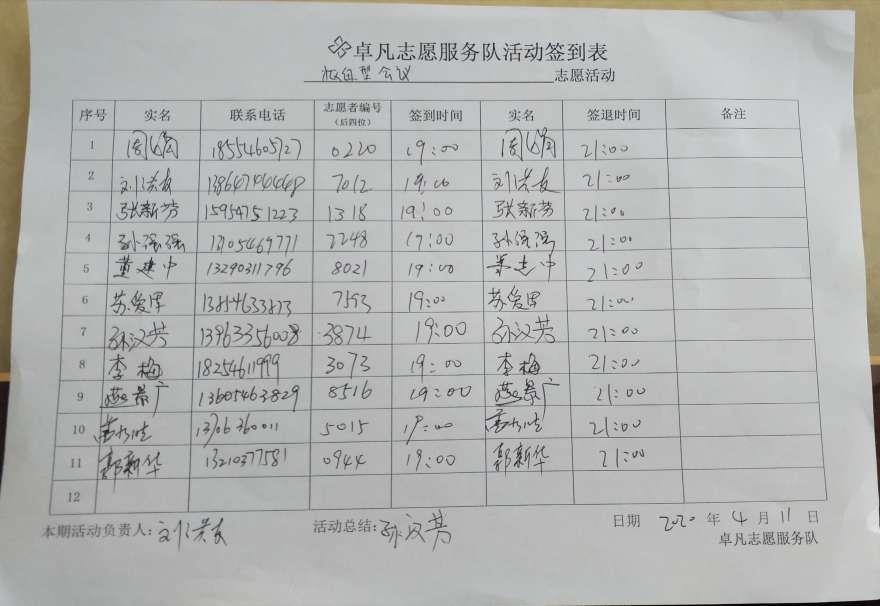 卓凡志愿服务队活动签到表
会议 志愿活动
序号 实名 联系电话 志愿者编号（后四位） 签到时间 实名 签退时间 备注
1 18554605727 0220 19:00 21:00
2 刘洪友 13864744448 7012 19:00 刘洪友 21:00
3 张新芳 15954751223 1318 19:00 张新芳 21:00
4 孙强强 2248 19:00 孙强强 21:00
5 董建中 13290311796 8021 19:00 董建中 21:00
6 苏爱军 13854633813 7593 19:00 苏爱军 21:00
7 孙汉芳 13963356008 3874 19:00 孙汉芳 21:00
8 李梅 18254611999 3073 19:00 李梅 21:00
9 燕景广 13605463829 8516 19:00 燕景广 21:00
10 5015 19:00 21:00
11 郭新华 13210377581 0944 19:00 郭新华 21:00
12
本期活动负责人：刘洪友 活动总结：孙汉芳 日期 2020 年 4 月 11 日
卓凡志愿服务队